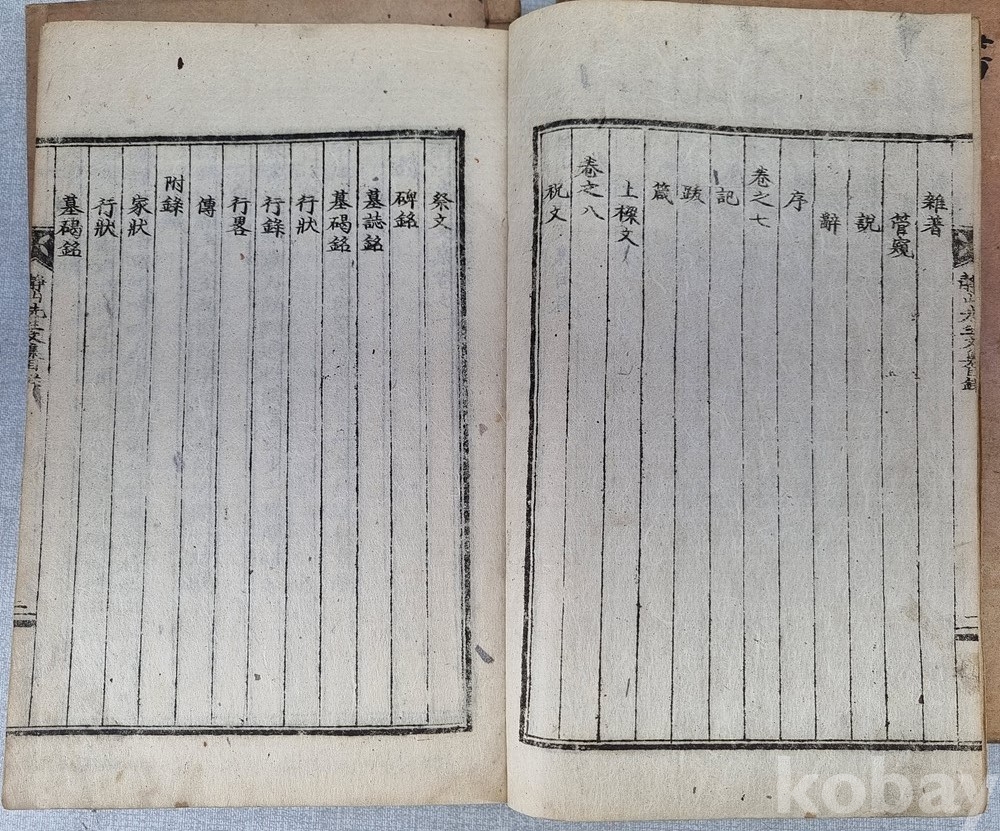 雜著
管窺
說
辭
序
卷之七
記
跋
箴
上樑文
卷之八
祝文
祭文
碑銘
墓誌銘
墓碣銘
行狀
行錄
行畧
傳
附錄
家狀
行狀
墓碣銘
二
kobay